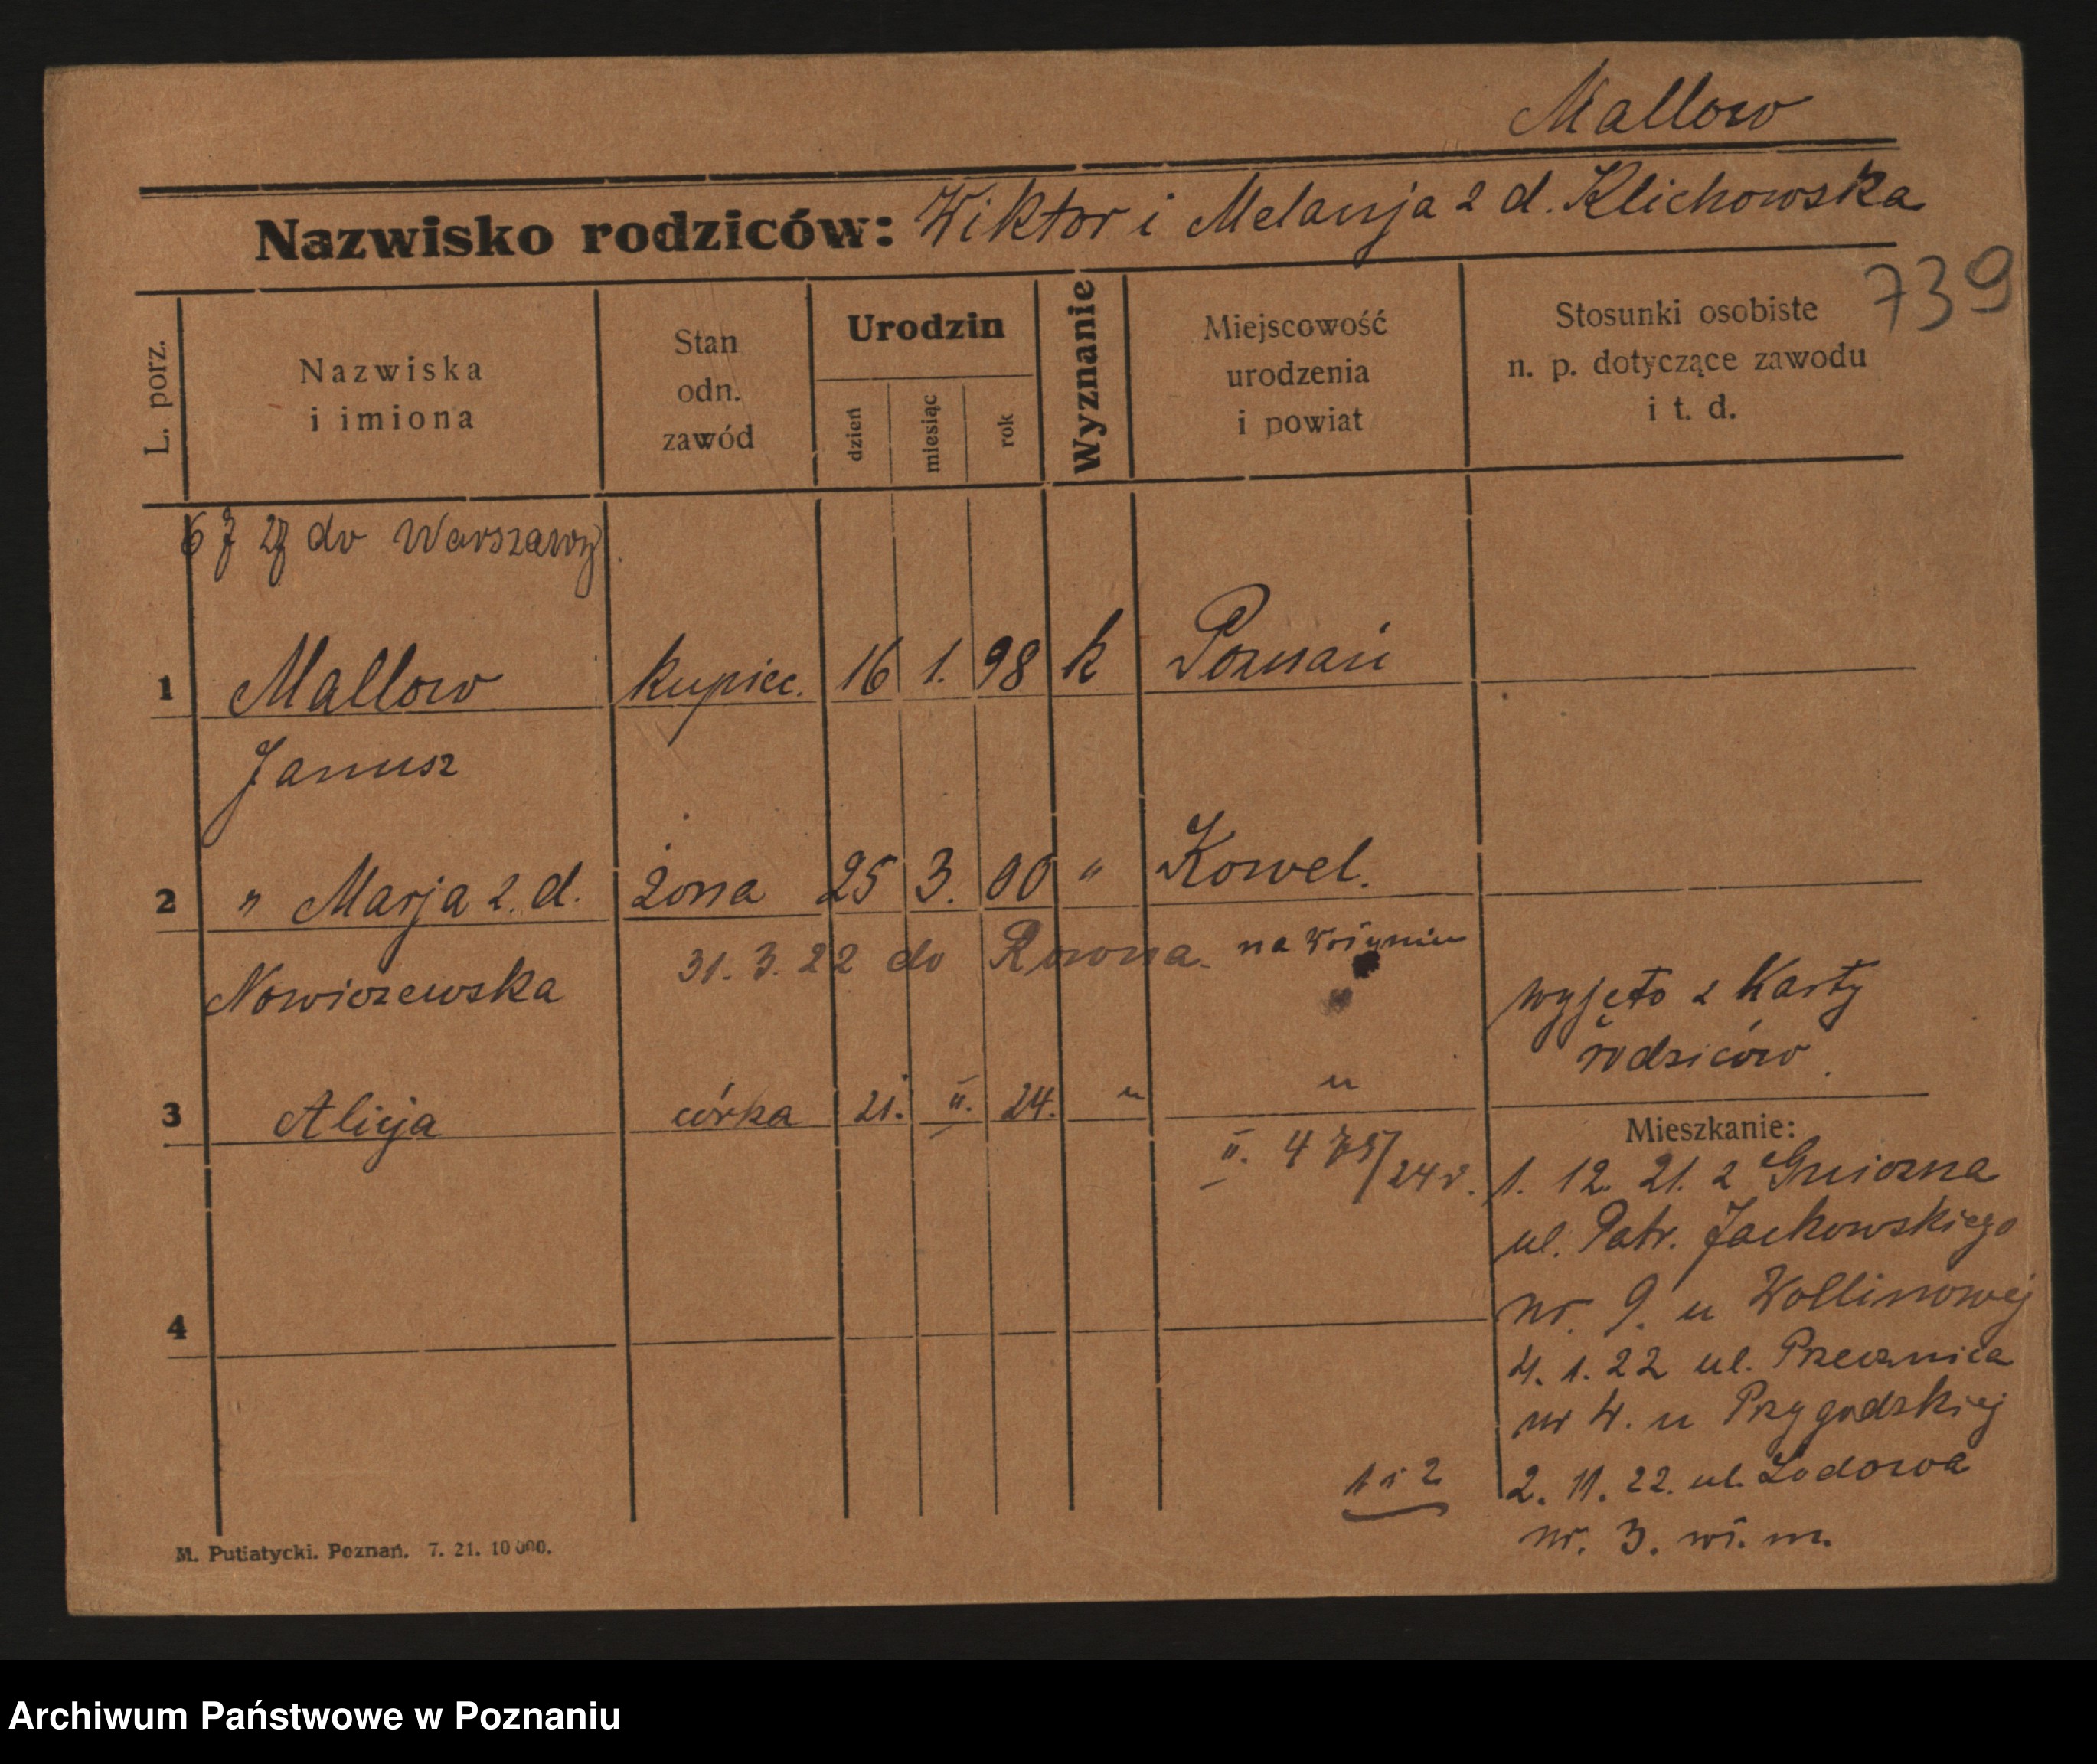 Mallow
Nazwisko rodziców: Wiktor i Melanja z d. Klichowska
739
L. porz.
Nazwiska
i imiona
Stan
odn.
zawód
Urodzin
dzień
miesiąc
rok
Wyznanie
Miejscowość
urodzenia
i powiat
Stosunki osobiste
n. p. dotyczące zawodu
i t. d.
6 7 27 do Warszawy
1 Mallow kupiec. 16 1. 98 k Poznań
Janusz
2 " Marja z. d. żona 25 3. 00 " Kowel.
31. 3. 22 do Rowna. na Wołyniu
Nowiczewska
wyjęto z Karty
rodziców.
3 Alicja córka 21. II. 24. " "
Mieszkanie:
II. 475/24 r.
1. 12. 21. z Gniezna
ul. Patr. Jackowskiego
nr. 9. u Wollinowej
4. 1. 22 ul. Przecznica
nr 4. u Przygodzkiej
4
1 i 2
2. 11. 22. ul. Lodowa
nr. 3. wł. m.
M. Putiatycki. Poznań. 7. 21. 10 000.
Archiwum Państwowe w Poznaniu